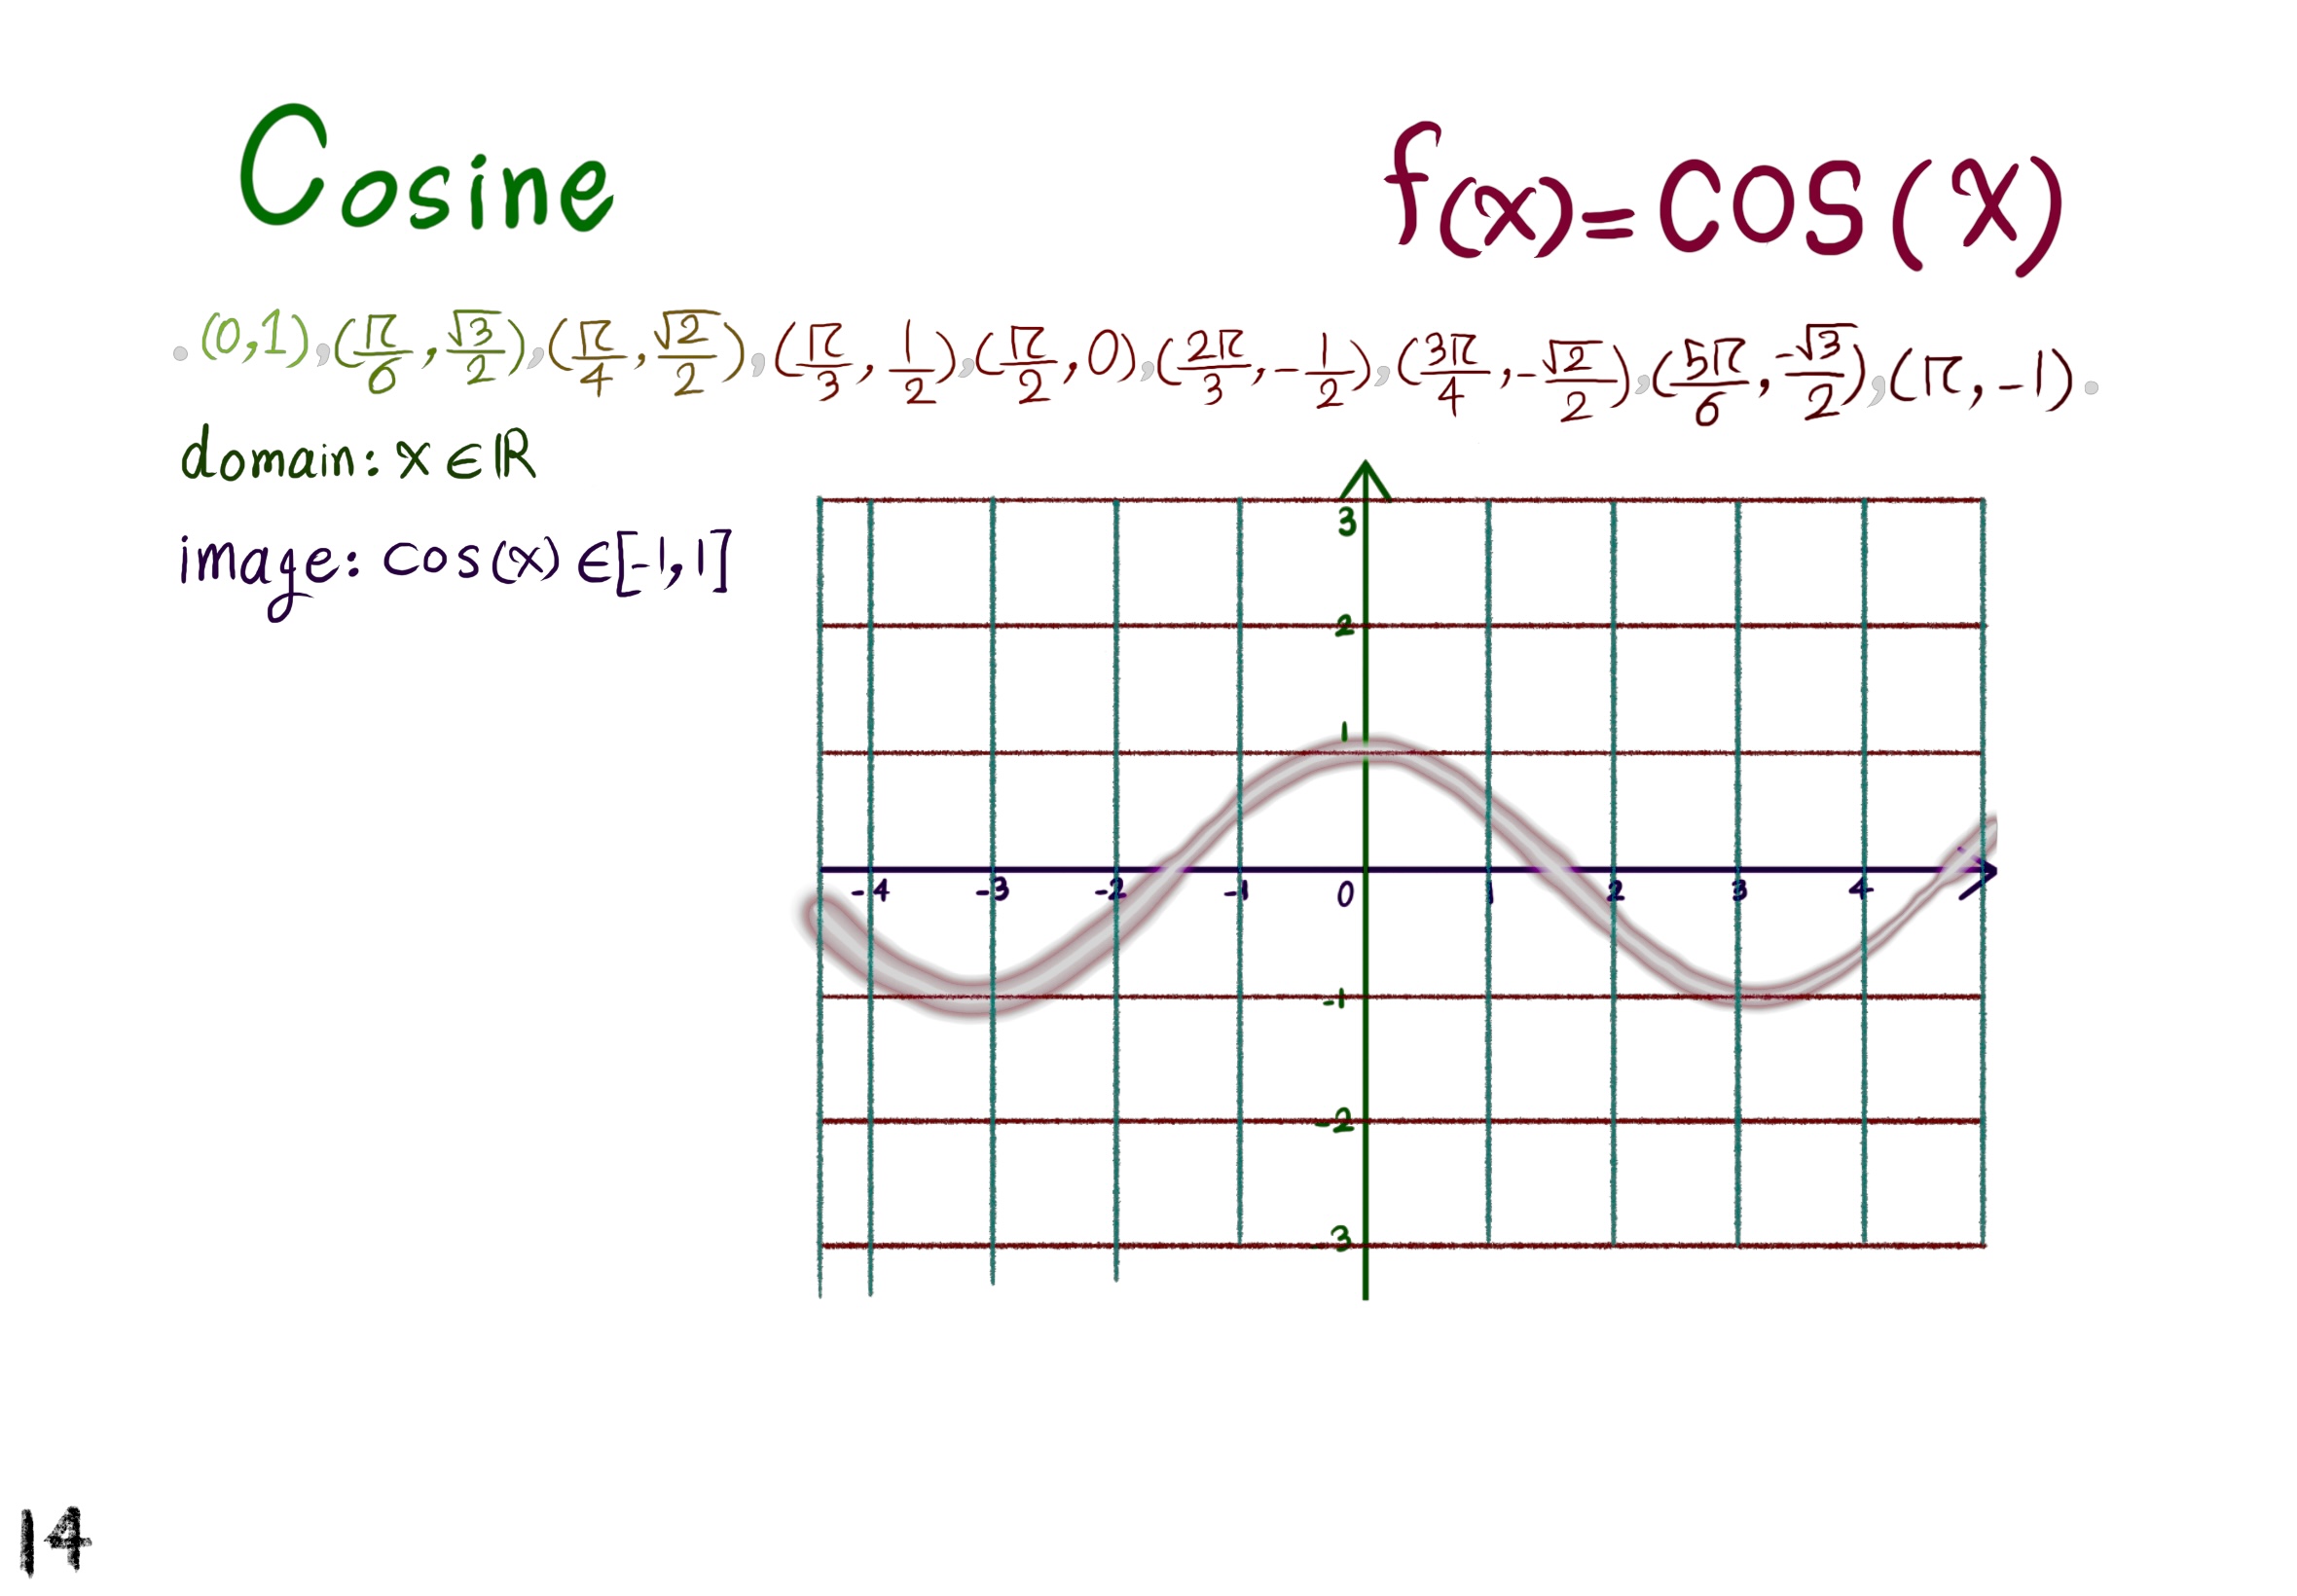 Cosine
f(x)=cos(x)
.(0,1),(π/6,√3/2),(π/4,√2/2),(π/3,1/2),(π/2,0),(2π/3,-1/2),(3π/4,-√2/2),(5π/6,-√3/2),(π,-1).
domain: x∈ℝ
image: cos(x)∈[-1,1]
3
2
1
-4 -3 -2 -1 0 1 2 3 4
-1
-2
-3
14